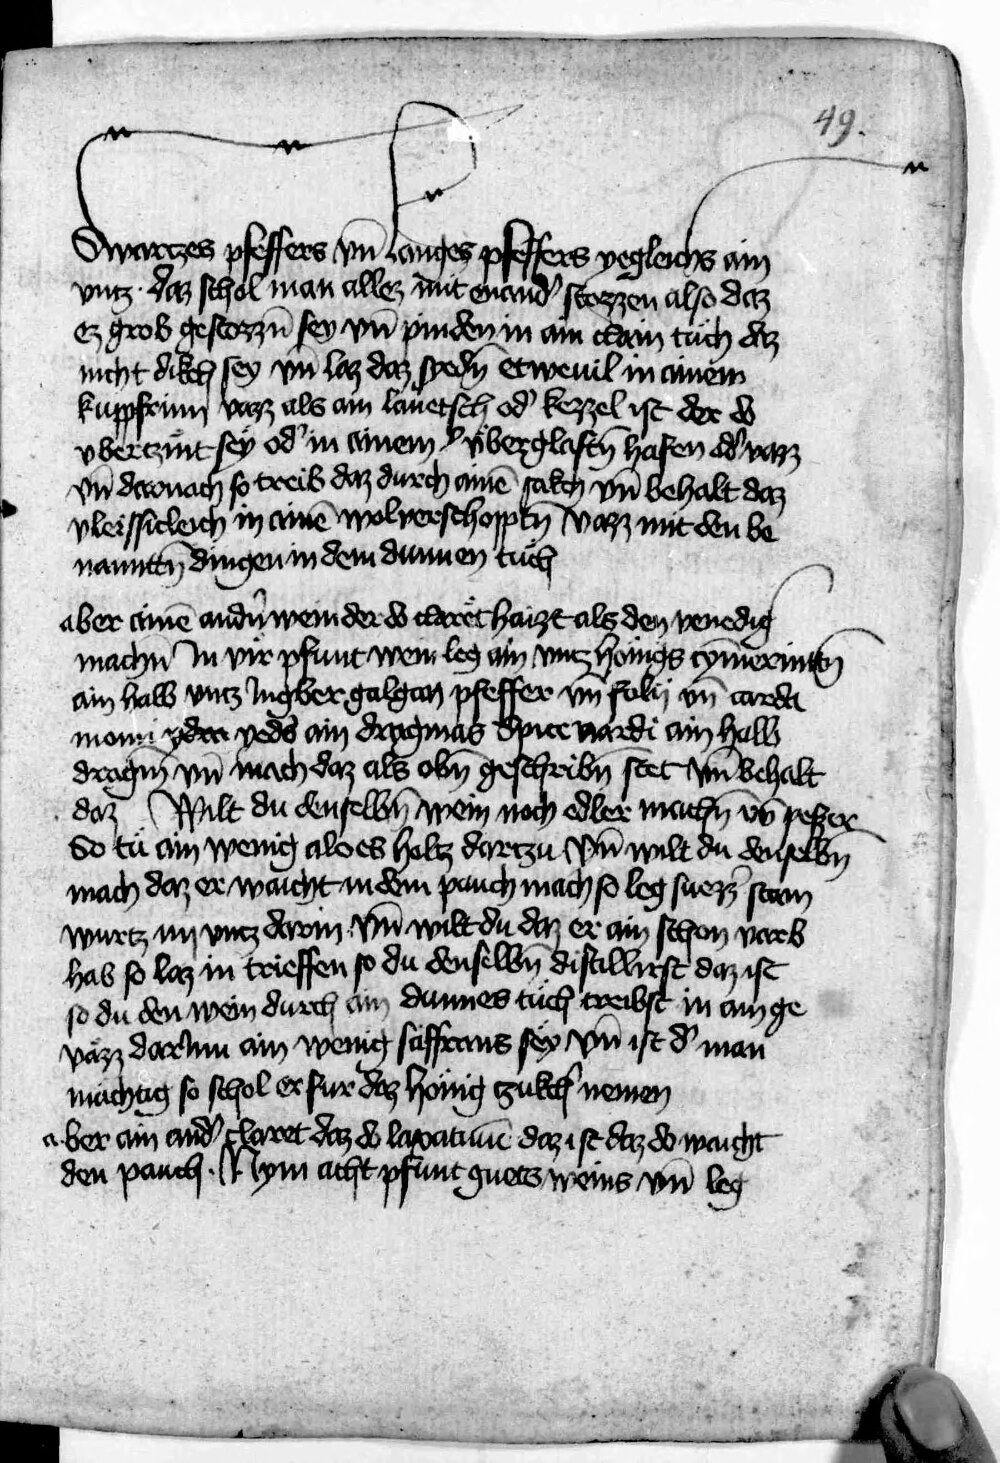 49.
Swarczes pfeffers vn̄ Langes pfeffers yegleichs ain
vntz · daz schol man allez mit enandˀ stozzen also daz
ez grob gestozzn̄ sey vn̄ pinden in ain clain tüch daz
nicht dikch sey vn̄ laz daz syedn̄ etweuil in ainem
kuppfrinn vazz als ain lauetsch odˀ kezzel ist der do
vberczint seÿ odˀ in ainem vberglastn̄ hafen odˀ vazz
vn̄ darnach so treib daz durch ainē sakch vn̄ behalt daz
vleissicleich in ainē wolverschopptn̄ vazz mit den be
nanntn̄ dingen in dem dunnen tüch
aber ainē andn̄ wein der do claret haizt als den venedig
machn̄ In vir pfunt wein leg ain vntz honigs cymerinttn̄
ain halb vntz Ingber galgan pfeffer vn̄ folij vn̄ carda
momi yedˀs ain dragmas Spice nardi ain halb
dragm̄ vn̄ mach daz als obn̄ geschribn̄ stet vn̄ behalt
daz Wilt du denselbn̄ wein noch edler machn̄ vn̄ pezzer
So tü ain wenig aloes holtz dartzu vn̄ wilt du denselbn̄
mach daz er waicht in dem pauch mach so leg suezzˀ stain
wurtz iiij vntz darin · vn̄ wilt du daz er ain schon varb
hab so laz in trieffen so du denselbn̄ distillirst daz ist
so du den wein durch ain dunnes tüch treibst in ain ge
väzz darinn ain wenig saffrans seÿ vn̄ ist dˀ man
mächtig so schol er fur daz honig tzukchˀ nemen
aber ain andˀ claret daz do laxatiuū daz ist daz do waicht
den pauch · Nym acht pfunt guets weins vn̄ leg